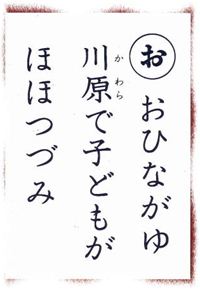 お
おひながゆ
川原で子どもが
かわら
ほほつづみ